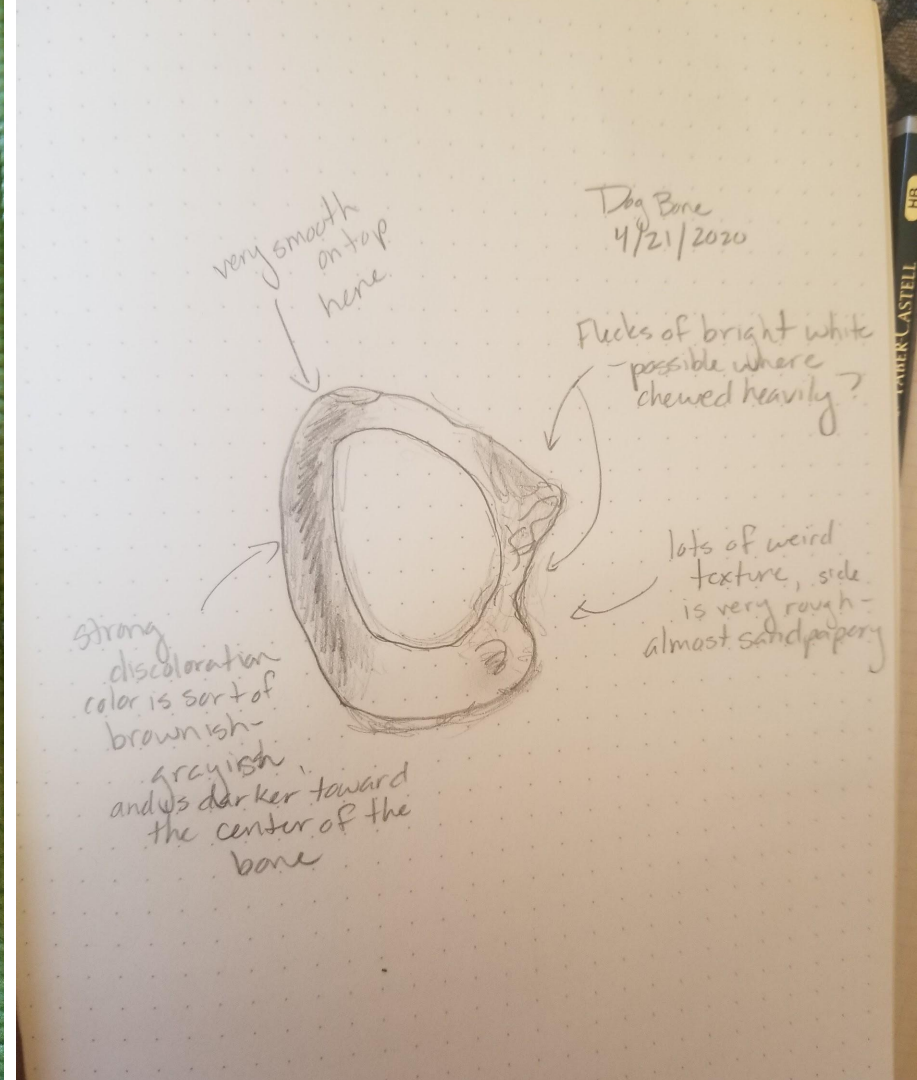 Dog Bone
4/21/2020
very smooth
on top
here
Flecks of bright white
-possible where
chewed heavily?
lots of weird
texture, side
is very rough-
almost sandpapery
strong
discoloration
color is sort of
brownish-
grayish,
and is darker toward
the center of the
bone
HB
FABER-CASTELL